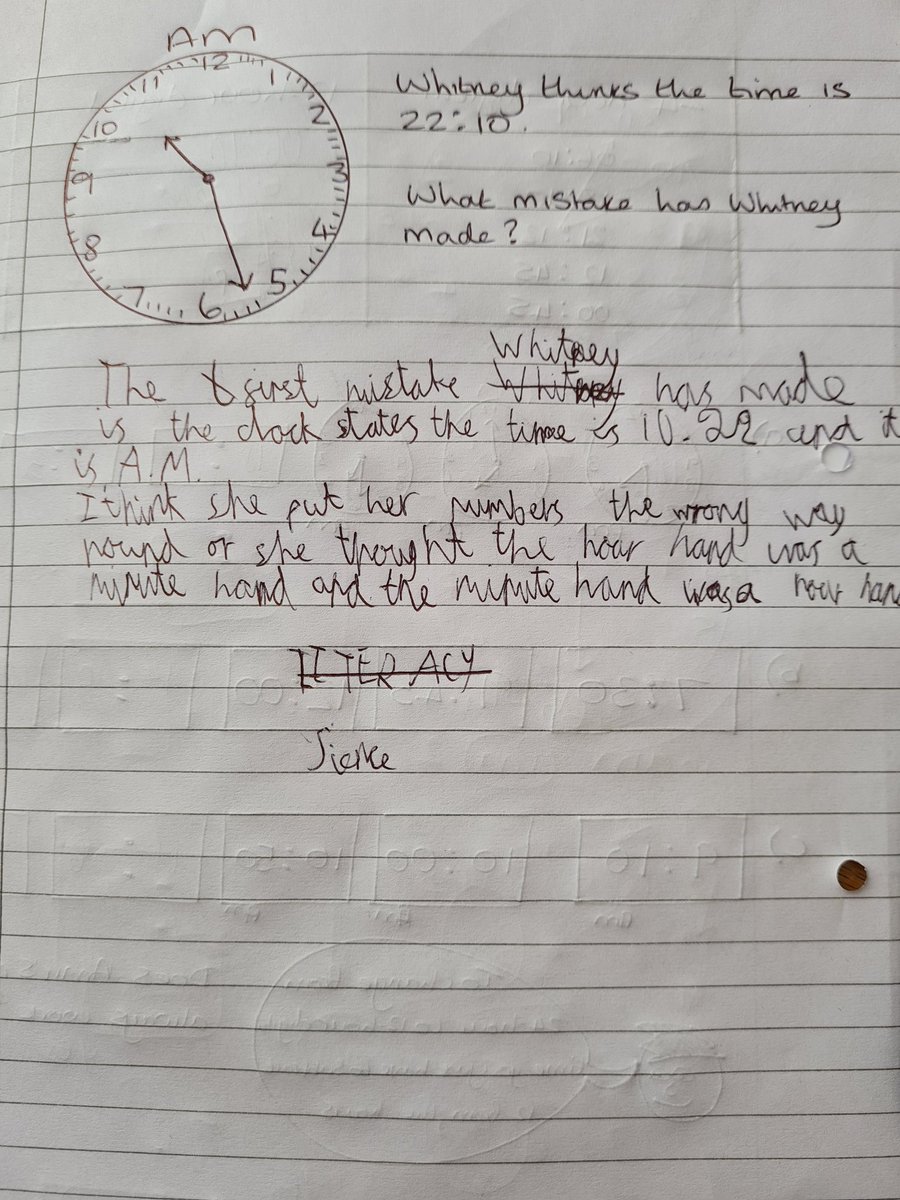 AM
12
1
2
3
4
5
6
7
8
9
10
11
Whitney thinks the time is
22:10.
What mistake has Whitney
made?
Whitney
The first mistake Whitney has made
is the clock states the time is 10.22 and it
is A.M.
I think she put her numbers the wrong way
round or she thought the hour hand was a
minute hand and the minute hand was a hour han
LITERACY